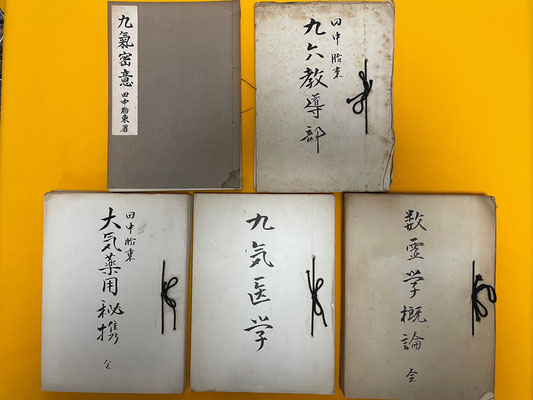 九氣密意 田中胎東著
田中胎東
九六教導部
田中胎東
大気薬用秘携
全
九気医学
数霊学概論 全